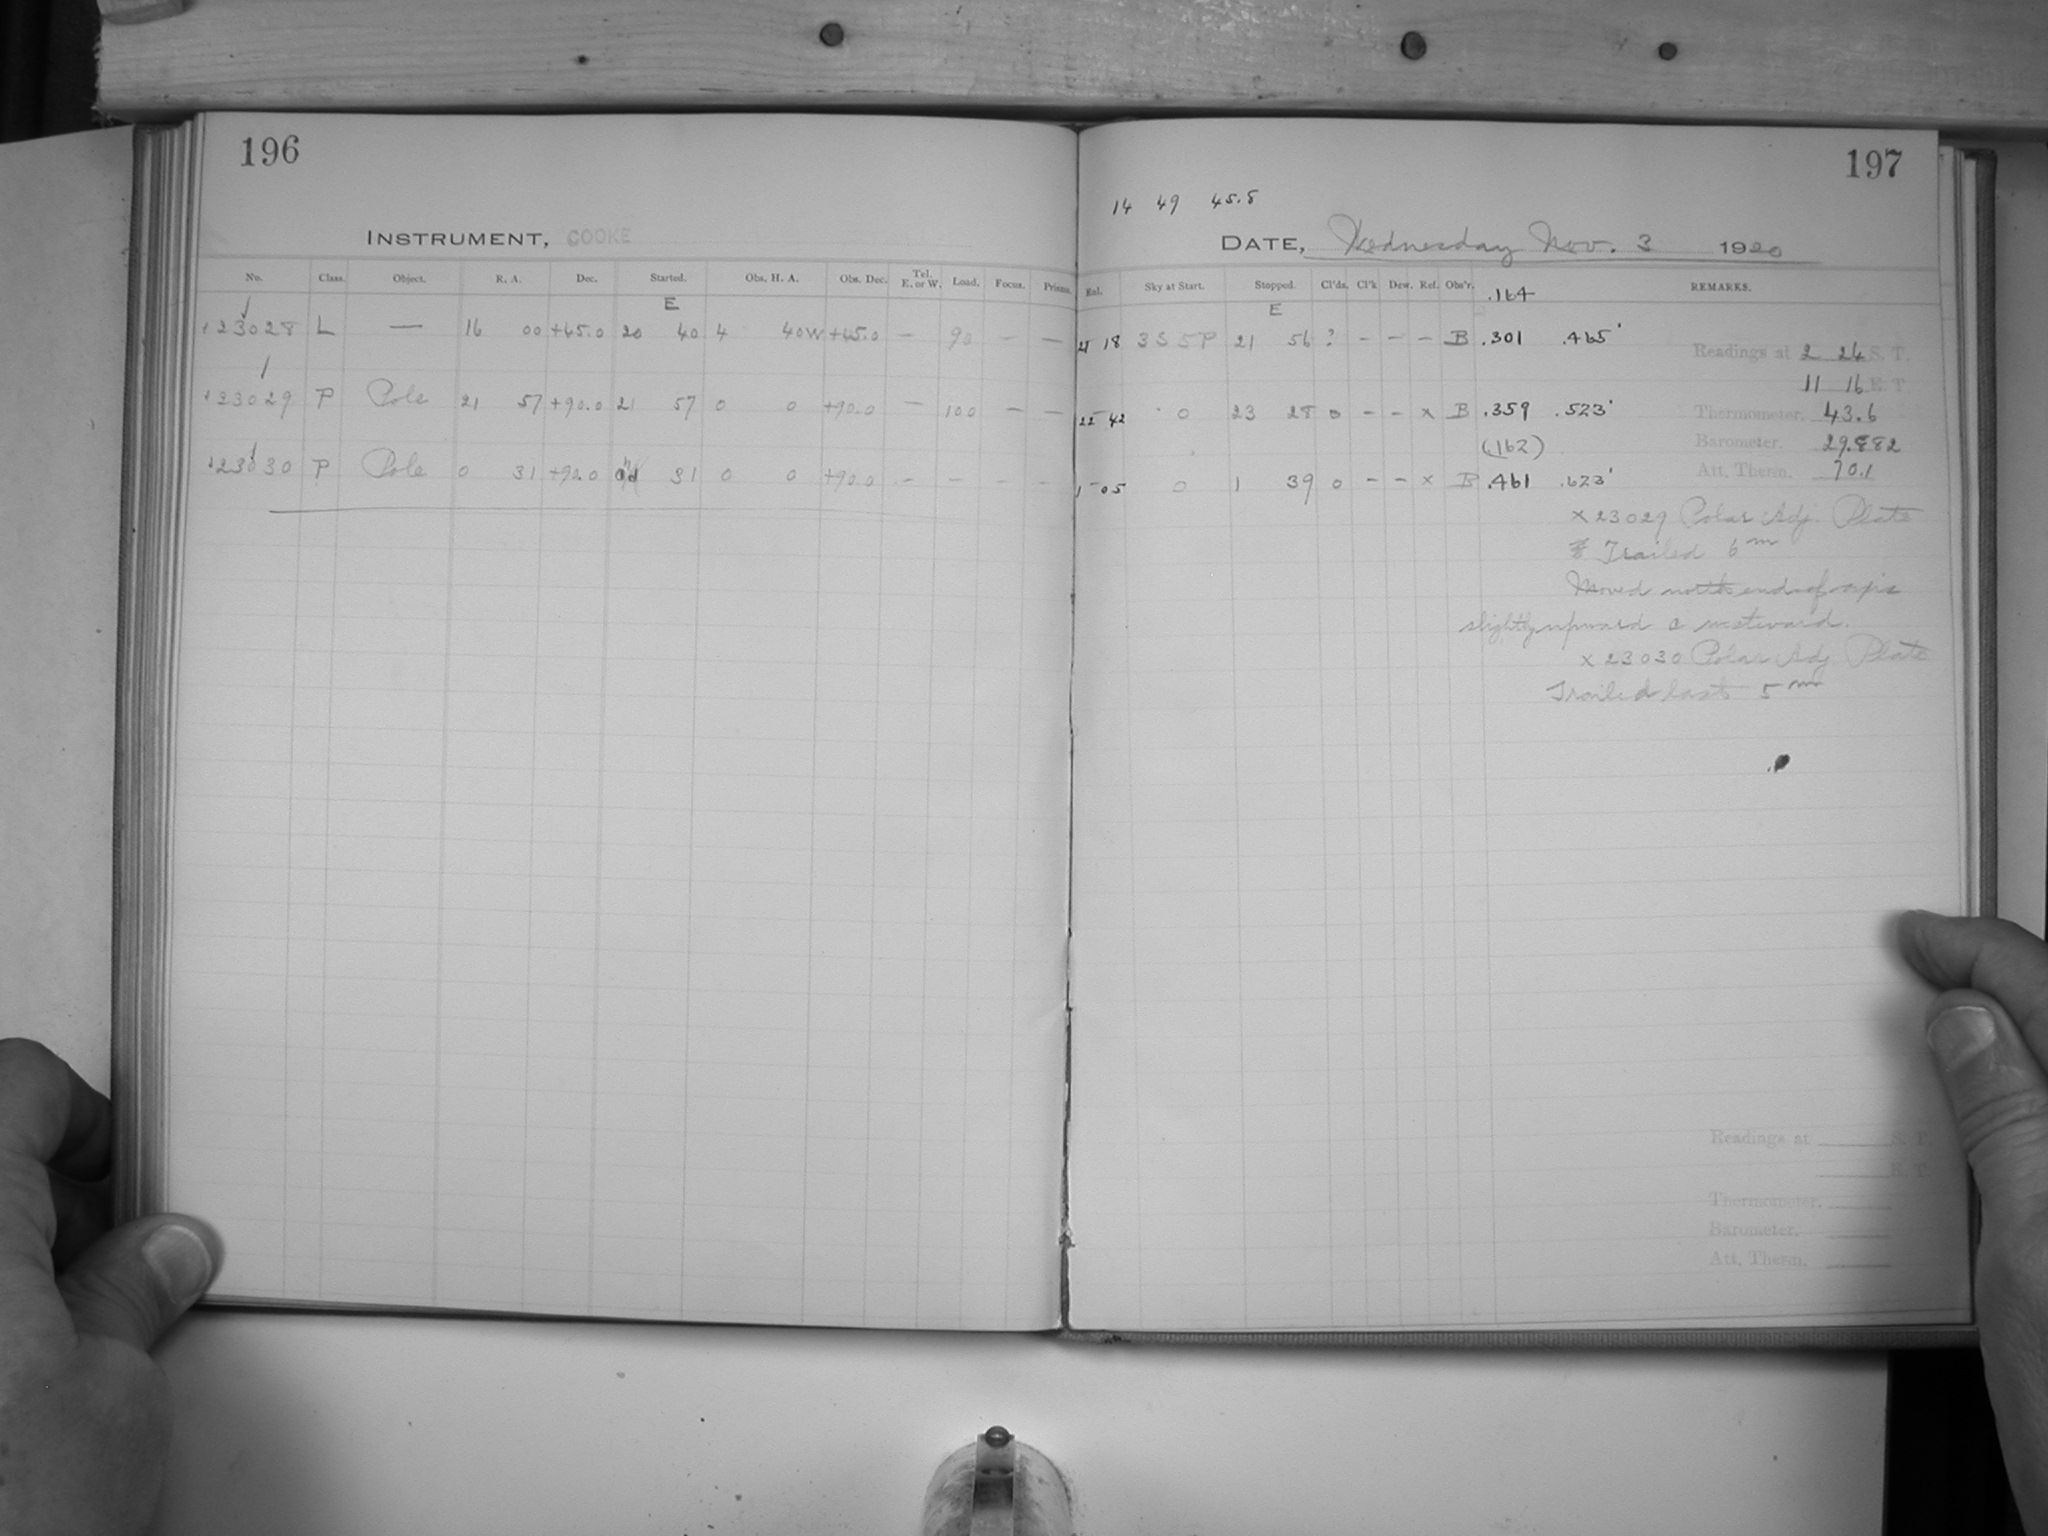 196
INSTRUMENT, COOKE
No. Class. Object. R. A. Dec. Started. Obs. H. A. Obs. Dec. Tel. E. or W. Load. Focus. Prisms.
E
23028 L — 16 00 +45.0 20 40 4 40W +45.0 — 90 — —
23029 P Pole 21 57 +90.0 21 57 0 0 +90.0 — 100 — —
23030 P Pole 0 31 +90.0 31 0 0 +90.0 — — — —
197
14 49 45.8
DATE, Wednesday Nov. 3 1920
Ent. Sky at Start. Stopped. Cl'ds. Cl'k Dew. Ref. Obs'r. .164 REMARKS.
E
21 18 3S 5P 21 56 ? - - - B .301 .465'
Readings at 2 24 S. T.
11 16 E. T.
22 42 0 23 28 0 - - x B .359 .523'
Thermometer. 43.6
(.162)
Barometer. 29.882
1 05 0 1 39 0 - - x B .461 .623'
Att. Therm. 70.1
x 23029 Polar Adj. Plate
Trailed 6m
Moved north end of axis
slightly upward & westward.
x 23030 Polar Adj Plate
Trailed last 5m
Readings at S. T.
E. T.
Thermometer.
Barometer.
Att. Therm.